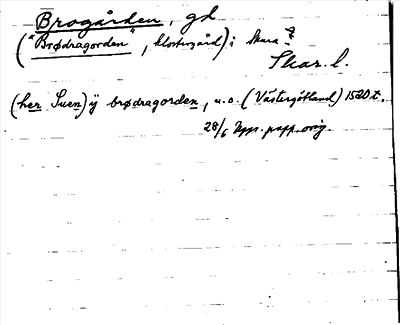 Brogården, gd
("Brødragorden", klostergård) i Skara?
Skar. l.
(her Suen) ÿ brødragorden, u.o. (Västergötland) 1520 t.
28/6 Upps. papp. orig.